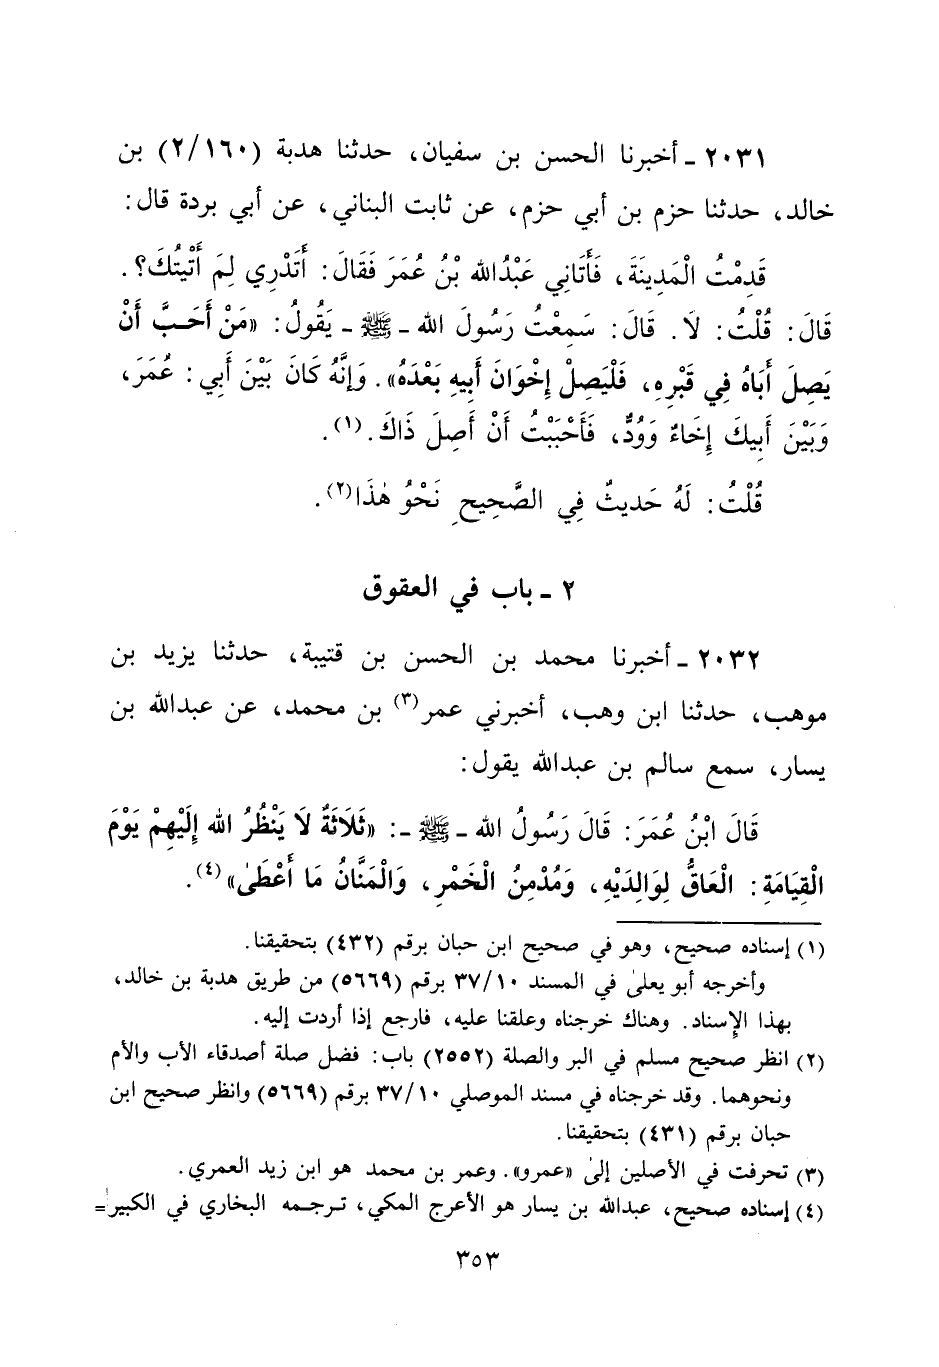 ٢٠٣١ - أخبرنا الحسن بن سفيان، حدثنا هدبة (٢/١٦٠) بن
خالد، حدثنا حزم بن أبي حزم، عن ثابت البناني، عن أبي بردة قال:
قَدِمْتُ الْمَدِينَةَ، فَأَتَانِي عَبْدُالله بْنُ عُمَرَ فَقَالَ: أَتَدْرِي لِمَ أَتَيْتُكَ؟.
قَالَ: قُلْتُ: لَا. قَالَ: سَمِعْتُ رَسُولَ الله - ﷺ - يَقُولُ: «مَنْ أَحَبَّ أَنْ
يَصِلَ أَبَاهُ فِي قَبْرِهِ، فَلْيَصِلْ إِخْوَانَ أَبِيهِ بَعْدَهُ». وَإِنَّهُ كَانَ بَيْنَ أَبِي: عُمَرَ،
وَبَيْنَ أَبِيكَ إِخَاءٌ وَوُدٌّ، فَأَحْبَبْتُ أَنْ أَصِلَ ذَاكَ.(١).
قُلْتُ: لَهُ حَدِيثٌ فِي الصَّحِيحِ نَحْوُ هٰذَا(٢).
٢ - باب في العقوق
٢٠٣٢ - أخبرنا محمد بن الحسن بن قتيبة، حدثنا يزيد بن
موهب، حدثنا ابن وهب، أخبرني عمر(٣) بن محمد، عن عبدالله بن
يسار، سمع سالم بن عبدالله يقول:
قَالَ ابْنُ عُمَرَ: قَالَ رَسُولُ الله - ﷺ -: «ثَلَاثَةٌ لَا يَنْظُرُ الله إِلَيْهِمْ يَوْمَ
الْقِيَامَةِ: الْعَاقُّ لِوَالِدَيْهِ، وَمُدْمِنُ الْخَمْرِ، وَالْمَنَّانُ مَا أَعْطَىٰ»(٤).
(١) إسناده صحيح، وهو في صحيح ابن حبان برقم (٤٣٢) بتحقيقنا.
وأخرجه أبو يعلىٰ في المسند ٣٧/١٠ برقم (٥٦٦٩) من طريق هدبة بن خالد،
بهذا الإسناد. وهناك خرجناه وعلقنا عليه، فارجع إذا أردت إليه.
(٢) انظر صحيح مسلم في البر والصلة (٢٥٥٢) باب: فضل صلة أصدقاء الأب والأم
ونحوهما. وقد خرجناه في مسند الموصلي ٣٧/١٠ برقم (٥٦٦٩) وانظر صحيح ابن
حبان برقم (٤٣١) بتحقيقنا.
(٣) تحرفت في الأصلين إلىٰ «عمرو». وعمر بن محمد هو ابن زيد العمري.
(٤) إسناده صحيح، عبدالله بن يسار هو الأعرج المكي، ترجمه البخاري في الكبير =
٣٥٣